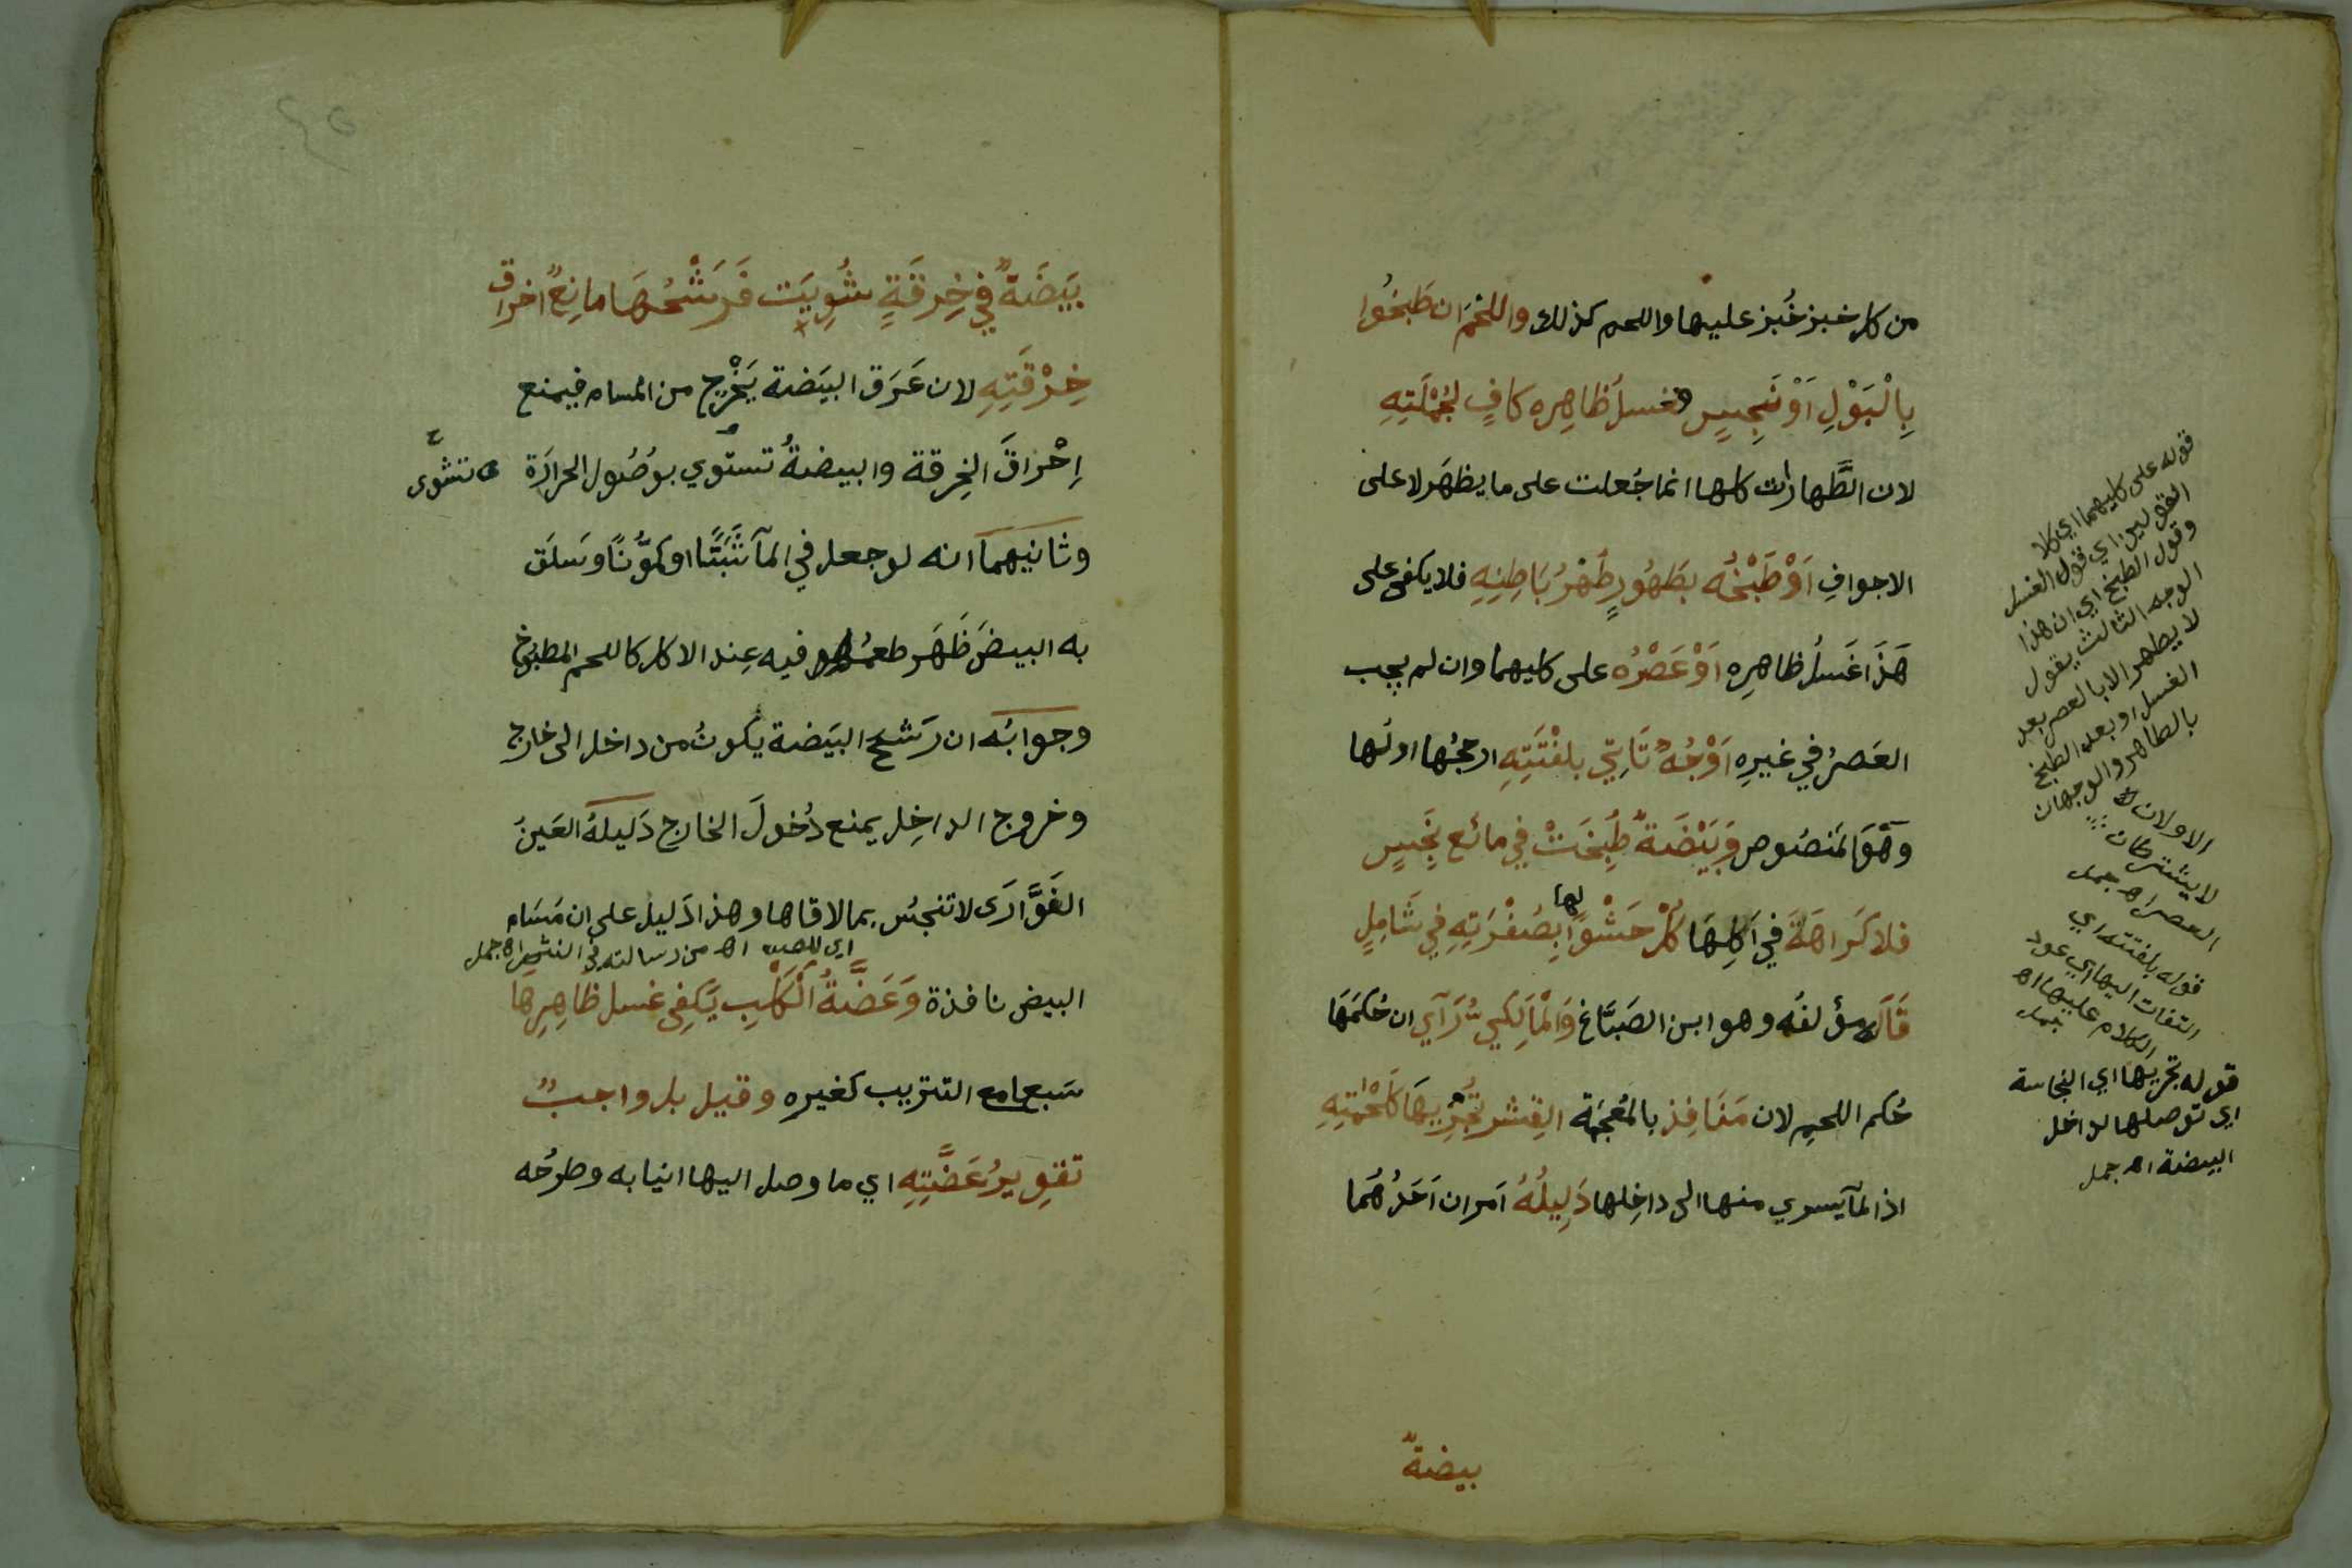 من كل خبز خُبز عليها واللحم كذلك واللحْمَ ان طَبخُوا
بِالْبَوْلِ اَوْ نَجِيسٍ فغسلُ ظاهِره كافٍ لجُمْلَتِهِ
لان الطَّهارات كلها انما جُعلت على ما يظهَر لا على
الاجوافِ اَوْ طَبْخُه بطَهُورٍ طُهْرُ بَاطِنِهِ فلا يكفى على
هَذَا غَسلُ ظاهِرِه اَوْ عَصْرُه على كليهما وان لم يجب
العَصرُ في غيرِه اَوْجُهٌ تَاتِي بلفْتَتِهِ ارجحُها اولها
وهْوَ المَنصُوص وَبَيْضَةٌ طُبِخَتْ في مائع نَجِيسٍ
فلا كَراهَةَ في اَكلِهَا كُلْ حَشْوًا لها بِصُفْرَتِهِ في شَامِلٍ
قَالَه مؤلفُه وهو ابن الصَبَّاغ وَالْمَالِكيُّ رَآي ان حُكمَهَا
حُكم اللحمِ لان مَنَافِذ بالمُعْجَمَة القِشر تُجْرِيهَا كَلَحْمَتِهِ
اذ المآ يسري منها الى داخِلها دَلِيلُهُ اَمران اَحَدُهُما
بيضةٌ
قوله على كليهما اي كلا
القولين اي قول الغسل
وقول الطبخ اي ان هذا
الوجه الثالث يقول
لا يطهر الا بالعصر بعد
الغسل او بعد الطبخ
بالطاهر والوجهان
الاولان لا
لا يشترطان
العصر اه جمل
قوله بلفتته اي
التفات اليها اي عود
الكلام عليها اه
جمل
قوله تجريها اي النجاسة
اي توصلها لداخل
البيضة اه جمل
بَيضَةٌ في خِرقَةٍ شُوِيَت فَرَشْحُهَا مانِعٌ اخراق
خِرْقَتِهِ لان عَرَق البيَضة يَخْرج من المسام فيمنع
اِحْراقَ الخِرقة والبيضةُ تستوي بوصُول الحرارَة تنشوى
وثانيهما انه لو جعل في المآ شَبَتًّا او كمّونًا وسَلَق
به البيضَ ظَهَر طعمُه فيه عِند الاكل كاللحم المطبوخ
وجوابُه ان رَشحَ البيَضة يكونُ من داخل الى خارج
وخروج الداخِل يمنع دُخولَ الخارج دَليلهُ العَينُ
الفَوَّارَى لا تنجسُ بما لاقاها وهذا دَليل على ان مَسَام
البيض نافذة وَعَضَّةُ الْكَلْبِ يَكفِى غسل ظاهِرِهَا
سَبعا مع التتريب كغيره وقيل بل واجبٌ
تقوِيرُ عَضَّتِهِ اي ما وصل اليها انيابه وطرحُه